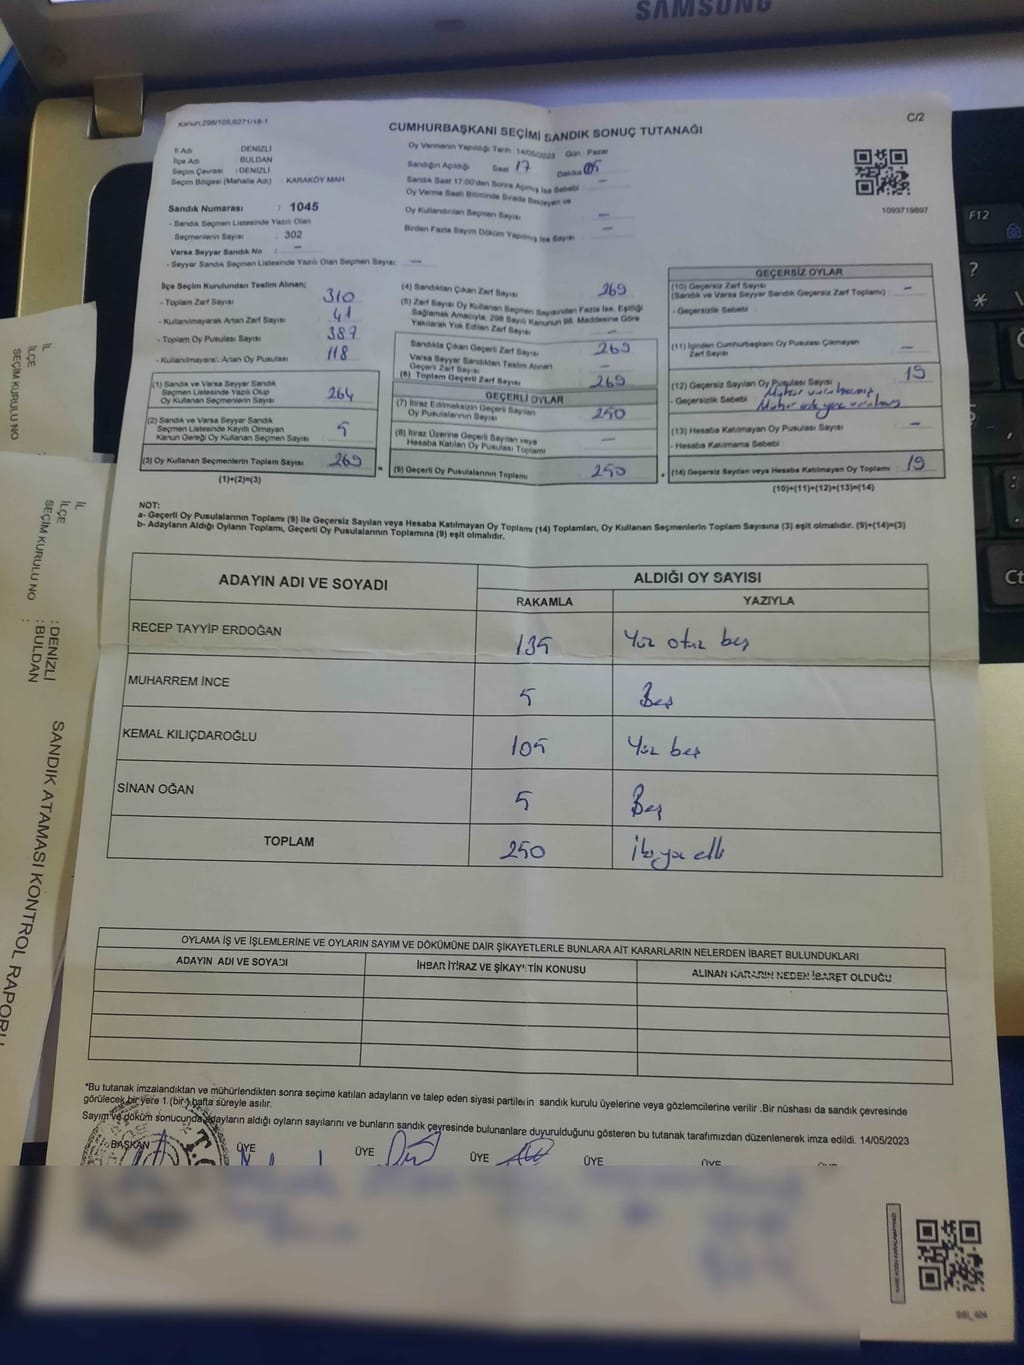 SAMSUNG
Kanun:298/105,6271/18-1
C/2
CUMHURBAŞKANI SEÇİMİ SANDIK SONUÇ TUTANAĞI
İl Adı DENİZLİ
İlçe Adı BULDAN
Seçim Çevresi : DENİZLİ
Seçim Bölgesi (Mahalle Adı) KARAKÖY MAH
Sandık Numarası : 1045
- Sandık Seçmen Listesinde Yazılı Olan
Seçmenlerin Sayısı : 302
Varsa Seyyar Sandık No : –
- Seyyar Sandık Seçmen Listesinde Yazılı Olan Seçmen Sayısı : –
Oy Vermenin Yapıldığı Tarih : 14/05/2023 Gün : Pazar
Sandığın Açıldığı Saat 17 Dakika 05
Sandık Saat 17.00'den Sonra Açılmış İse Sebebi –
Oy Verme Saati Bitiminde Sırada Bekleyen ve
Oy Kullandırılan Seçmen Sayısı –
Birden Fazla Sayım Döküm Yapılmış İse Sayısı –
1093719897
İlçe Seçim Kurulundan Teslim Alınan;
- Toplam Zarf Sayısı 310
- Kullanılmayarak Artan Zarf Sayısı 41
- Toplam Oy Pusulası Sayısı 387
- Kullanılmayarak Artan Oy Pusulası 118
(1) Sandık ve Varsa Seyyar Sandık
Seçmen Listesinde Yazılı Olup
Oy Kullanan Seçmenlerin Sayısı 264
(2) Sandık ve Varsa Seyyar Sandık
Seçmen Listesinde Kayıtlı Olmayan
Kanun Gereği Oy Kullanan Seçmen Sayısı 5
(3) Oy Kullanan Seçmenlerin Toplam Sayısı 269
(1)+(2)=(3)
(4) Sandıktan Çıkan Zarf Sayısı 269
(5) Zarf Sayısı Oy Kullanan Seçmen Sayısından Fazla İse, Eşitliği
Sağlamak Amacıyla, 298 Sayılı Kanunun 98. Maddesine Göre
Yakılarak Yok Edilen Zarf Sayısı –
Sandıkta Çıkan Geçerli Zarf Sayısı 269
Varsa Seyyar Sandıktan Teslim Alınan
Geçerli Zarf Sayısı –
(6) Toplam Geçerli Zarf Sayısı 269
GEÇERLİ OYLAR
(7) İtiraz Edilmeksizin Geçerli Sayılan
Oy Pusulasının Sayısı 250
(8) İtiraz Üzerine Geçerli Sayılan veya
Hesaba Katılan Oy Pusulası Toplamı –
(9) Geçerli Oy Pusulalarının Toplamı 250
GEÇERSİZ OYLAR
(10) Geçersiz Zarf Sayısı –
(Sandık ve Varsa Seyyar Sandık Geçersiz Zarf Toplamı) :
- Geçersizlik Sebebi :
(11) İçinden Cumhurbaşkanı Oy Pusulası Çıkmayan
Zarf Sayısı –
(12) Geçersiz Sayılan Oy Pusulası Sayısı 19
- Geçersizlik Sebebi : Mühür vurulmamış
Mühür
(13) Hesaba Katılmayan Oy Pusulası Sayısı –
- Hesaba Katılmama Sebebi :
(14) Geçersiz Sayılan veya Hesaba Katılmayan Oy Toplamı : 19
(10)+(11)+(12)+(13)=(14)
NOT:
a- Geçerli Oy Pusulasının Toplamı (9) ile Geçersiz Sayılan veya Hesaba Katılmayan Oy Toplamı (14) Toplamları, Oy Kullanan Seçmenlerin Toplam Sayısına (3) eşit olmalıdır. (9)+(14)=(3)
b- Adayların Aldığı Oyların Toplamı, Geçerli Oy Pusulalarının Toplamına (9) eşit olmalıdır.
ADAYIN ADI VE SOYADI
ALDIĞI OY SAYISI
RAKAMLA YAZIYLA
RECEP TAYYİP ERDOĞAN 135 Yüz otuz beş
MUHARREM İNCE 5 Beş
KEMAL KILIÇDAROĞLU 105 Yüz beş
SİNAN OĞAN 5 Beş
TOPLAM 250 İki yüz elli
OYLAMA İŞ VE İŞLEMLERİNE VE OYLARIN SAYIM VE DÖKÜMÜNE DAİR ŞİKAYETLERLE BUNLARA AİT KARARLARIN NELERDEN İBARET BULUNDUKLARI
ADAYIN ADI VE SOYADI İHBAR İTİRAZ VE ŞİKAYETİN KONUSU ALINAN KARARIN NEDEN İBARET OLDUĞU
*Bu tutanak imzalandıktan ve mühürlendikten sonra seçime katılan adayların ve talep eden siyasi partilerin sandık kurulu üyelerine veya gözlemcilerine verilir .Bir nüshası da sandık çevresinde
görülecek bir yere 1 (bir) hafta süreyle asılır.
Sayım ve döküm sonucunda adayların aldığı oyların sayılarını ve bunların sandık çevresinde bulunanlara duyurulduğunu gösteren bu tutanak tarafımızdan düzenlenerek imza edildi. 14/05/2023
BAŞKAN ÜYE ÜYE ÜYE ÜYE ÜYE
T.C.
İL
İLÇE
SEÇİM KURULU NO
İL : DENİZLİ
İLÇE : BULDAN
SEÇİM KURULU NO :
SANDIK ATAMASI KONTROL RAPORU
F12
?
*
\
Ct